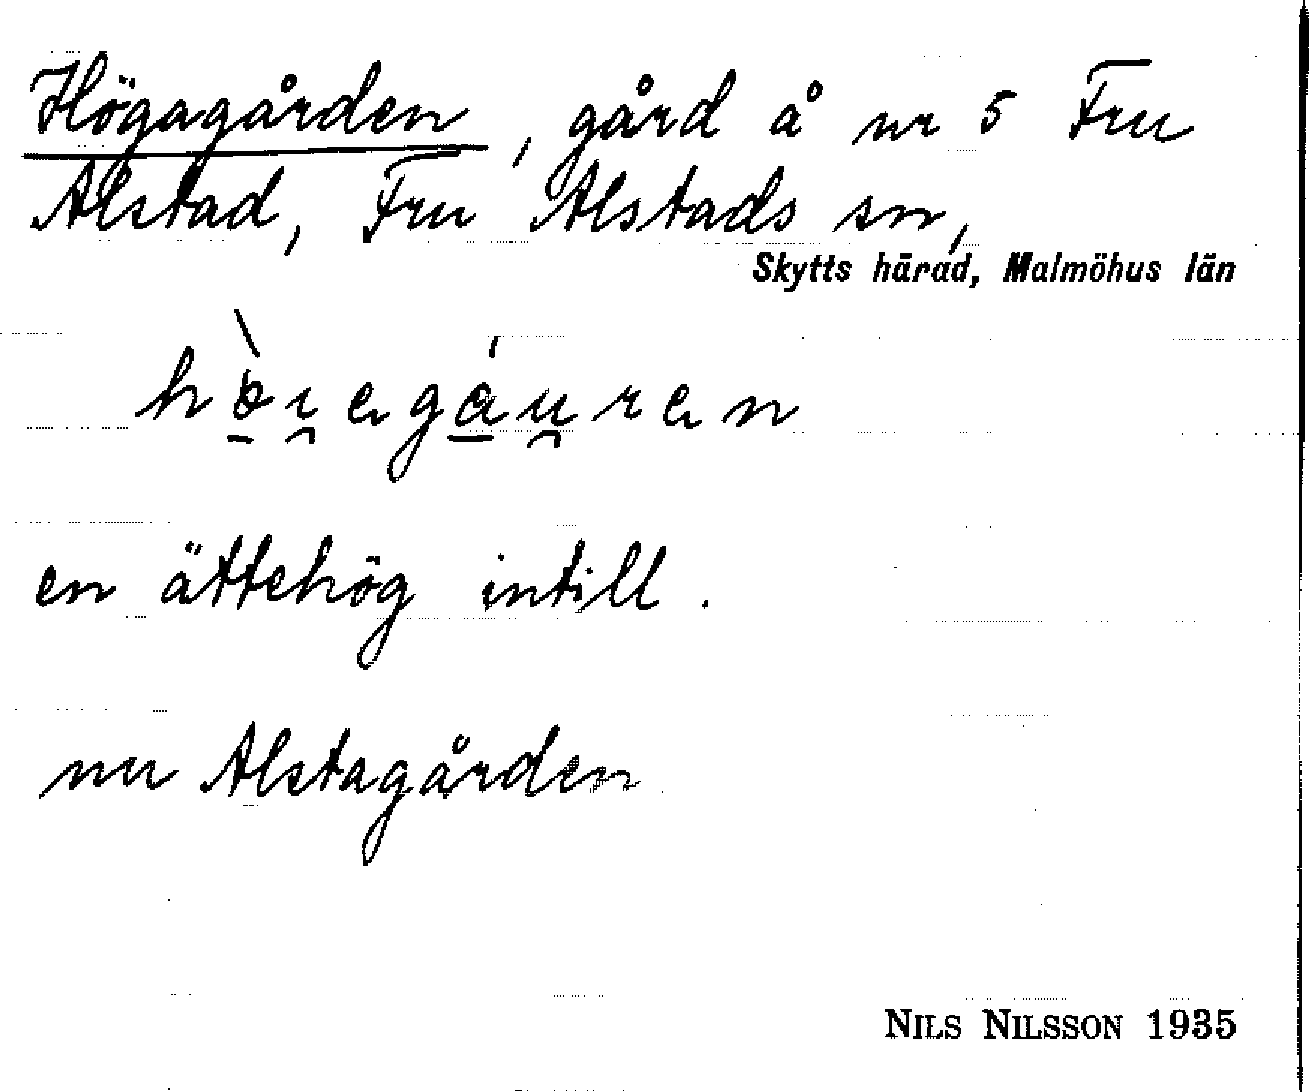 Högagården, gård å nr 5 Fru
Alstad, Fru Alstads sn,
Skytts härad, Malmöhus län
en ättehög intill.
nu Alstagården
NILS NILSSON 1935